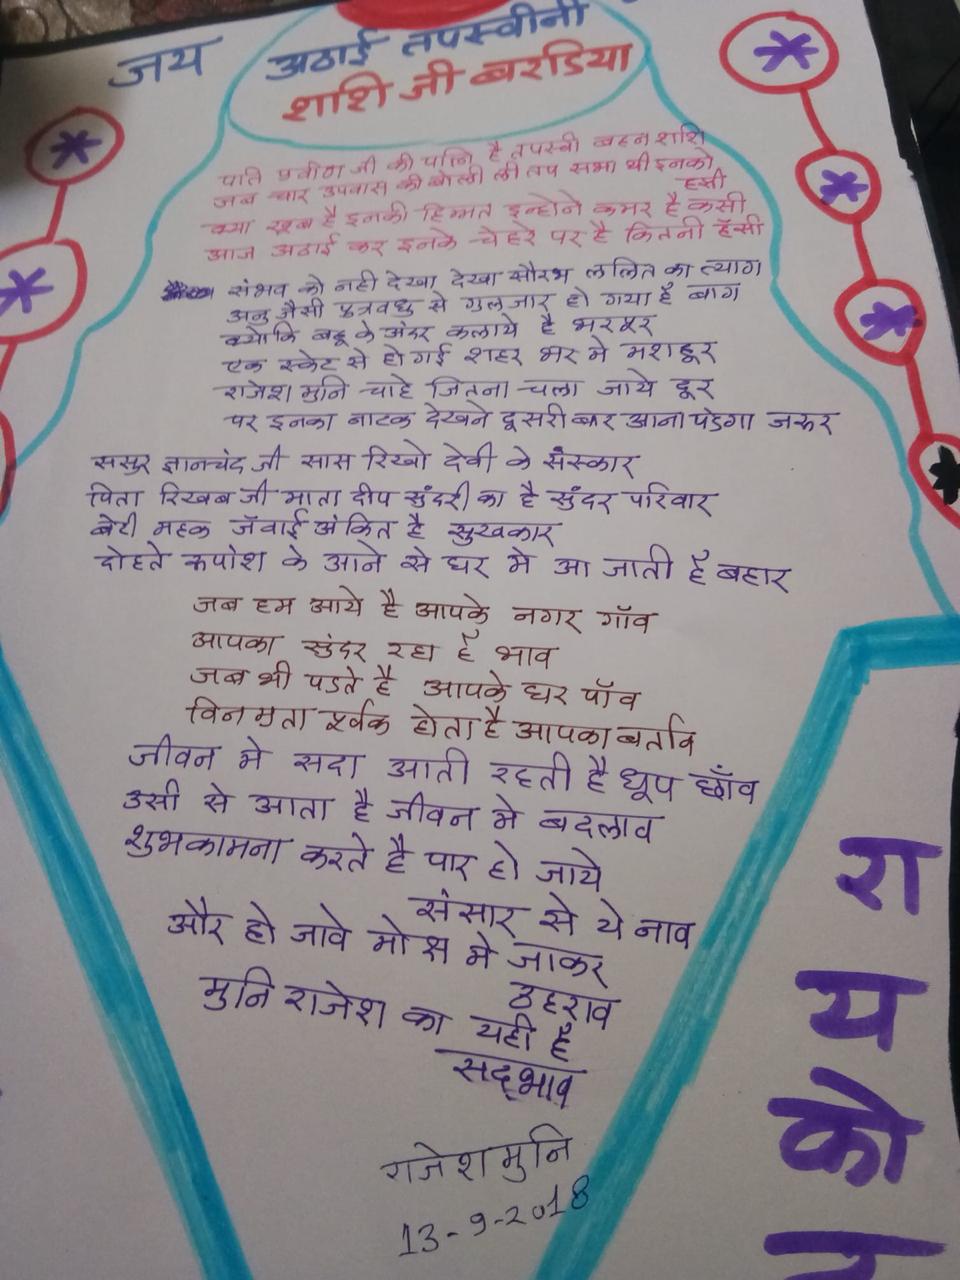 जय अठाई तपस्वीनी
शशि जी बरडिया
पति प्रवीण जी की पत्नि है तपस्वी बहन शशि
जब चार उपवास की बोली ली तप सभा थी इनको हसी
क्या खूब है इनकी हिम्मत इन्होने कमर है कसी
आज अठाई कर इनके चेहरे पर है कितनी हँसी
संभव को नही देखा देखा सौरभ ललित का त्याग
अनु जैसी पुत्रवधु से गुलजार हो गया है बाग
क्योकि बहू के अंदर कलाये है भरपुर
एक स्केट से हो गई शहर भर मे मशहूर
राजेश मुनि चाहे जितना चला जाये दूर
पर इनका नाटक देखने दूसरी बार आना पडेगा जरुर
ससुर ज्ञानचंद जी सास रिखो देवी के संस्कार
पिता रिखब जी माता दीप सुंदरी का है सुंदर परिवार
बेटी महक जँवाई अंकित है सुखकार
दोहते कपोश के आने से घर मे आ जाती है बहार
जब हम आये है आपके नगर गॉव
आपका सुंदर रहा है भाव
जब भी पडते है आपके घर पॉव
विनम्रता पूर्वक होता है आपका बर्ताव
जीवन मे सदा आती रहती है धूप छाँव
उसी से आता है जीवन मे बदलाव
शुभकामना करते है पार हो जाये
संसार से ये नाव
और हो जावे मोक्ष मे जाकर
ठहराव
मुनि राजेश का यही है
सद्‌भाव
राजेश मुनि
13-9-2018
रा
य
को